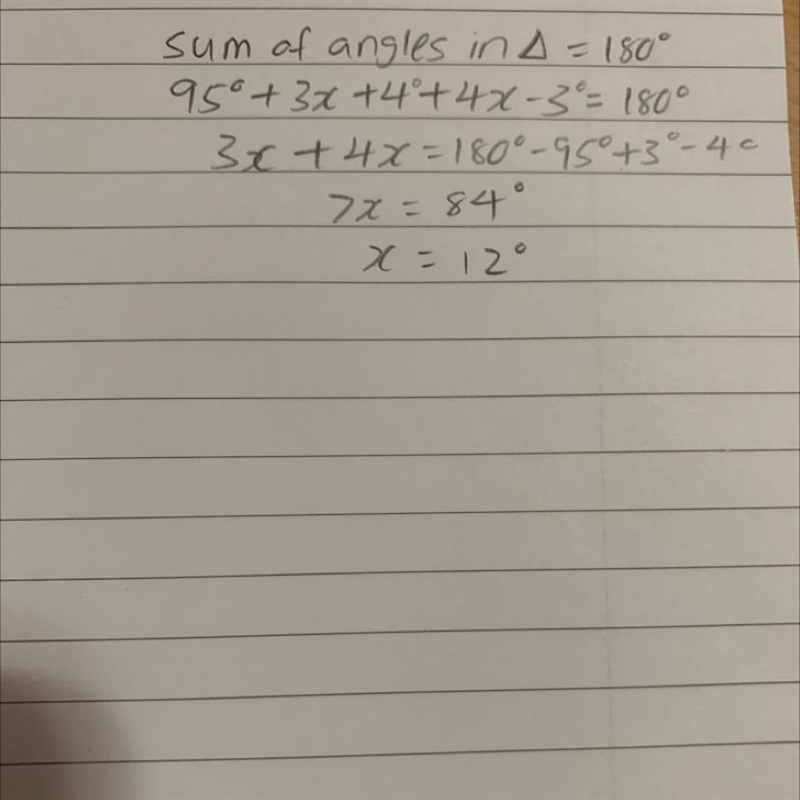 sum of angles in Δ = 180°
95° + 3x + 4° + 4x - 3° = 180°
3x + 4x = 180° - 95° + 3° - 4°
7x = 84°
x = 12°